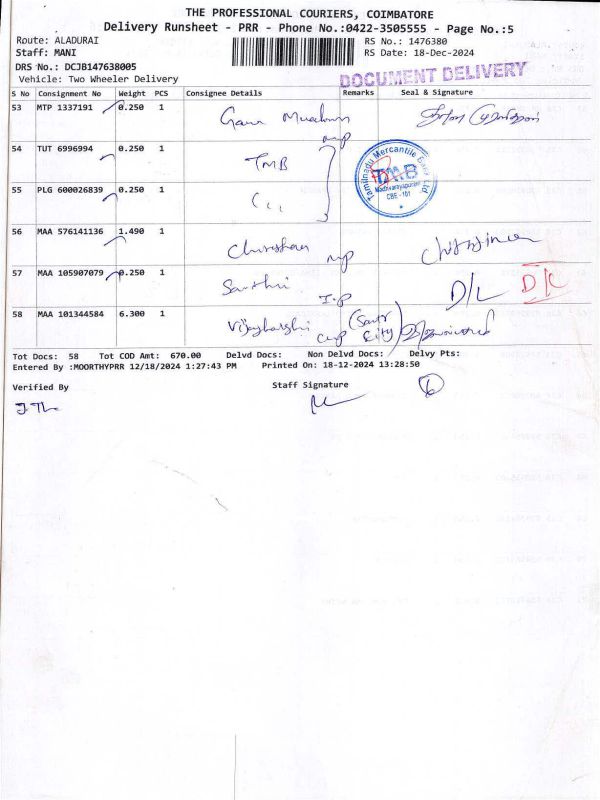 THE PROFESSIONAL COURIERS, COIMBATORE
Delivery Runsheet - PRR - Phone No.:0422-3505555 - Page No.:5
Route: ALADURAI RS No.: 1476380
Staff: MANI RS Date: 18-Dec-2024
DRS No.: DCJB147638005
Vehicle: Two Wheeler Delivery
DOCUMENT DELIVERY
S No Consignment No Weight PCS Consignee Details Remarks Seal & Signature
53 MTP 1337191 0.250 1
54 TUT 6996994 0.250 1 TMB
Tamilnadu Mercantile Bank Ltd.
TMB
CBE - 101
55 PLG 600026839 0.250 1
56 MAA 576141136 1.490 1
57 MAA 105907079 0.250 1 Santhi D/L
58 MAA 101344584 6.300 1
Tot Docs: 58 Tot COD Amt: 670.00 Delvd Docs: Non Delvd Docs: Delvy Pts:
Entered By :MOORTHYPRR 12/18/2024 1:27:43 PM Printed On: 18-12-2024 13:28:50
Verified By Staff Signature